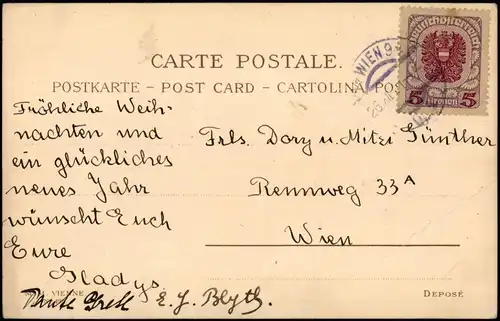 CARTE POSTALE.
POSTKARTE – POST CARD – CARTOLINA POS
WIEN 9
Deutschösterreich
5 Kronen 5
Fröhliche Weih-
nachten und
ein glückliches
neues Jahr
wünscht Euch
Eure
Gladys.
E. J. Blyth.
Frls. Dory u. Mitzi Günther
Rennweg 33A
Wien
VIENNE
DEPOSÉ